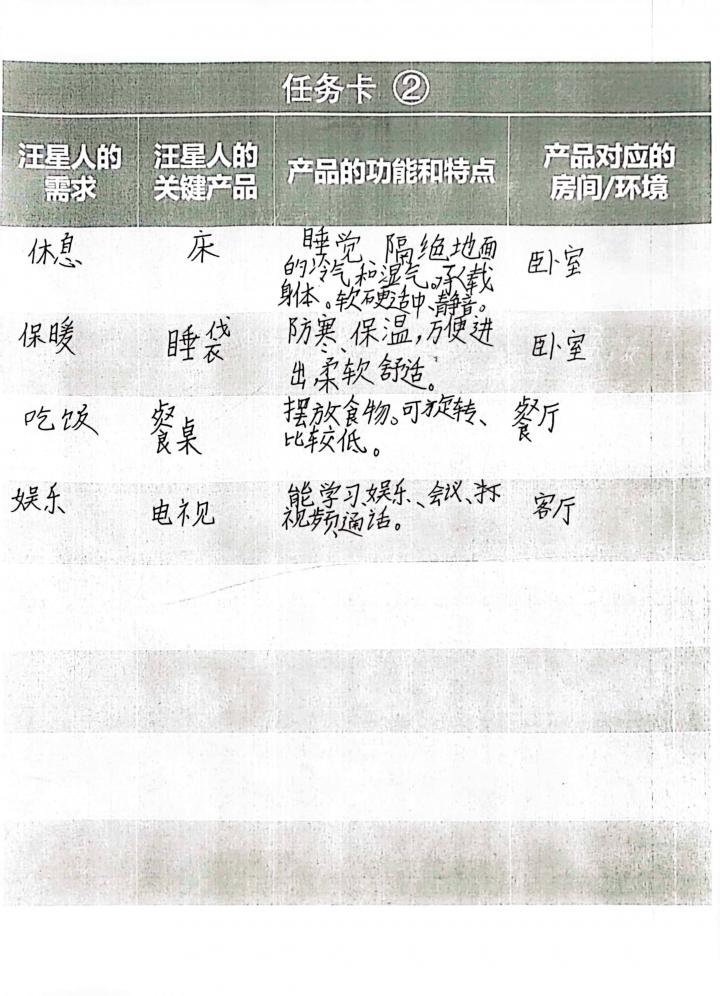 任务卡 ②
汪星人的
需求
汪星人的
关键产品
产品的功能和特点
产品对应的
房间/环境
休息
床
睡觉、隔绝地面
的冷气和湿气。承载
身体。软硬适中、静音。
卧室
保暖
睡袋
防寒、保温,方便进
出,柔软舒适。
卧室
吃饭
餐桌
摆放食物。可旋转、
比较低。
餐厅
娱乐
电视
能学习娱乐、会议、
视频通话。
客厅